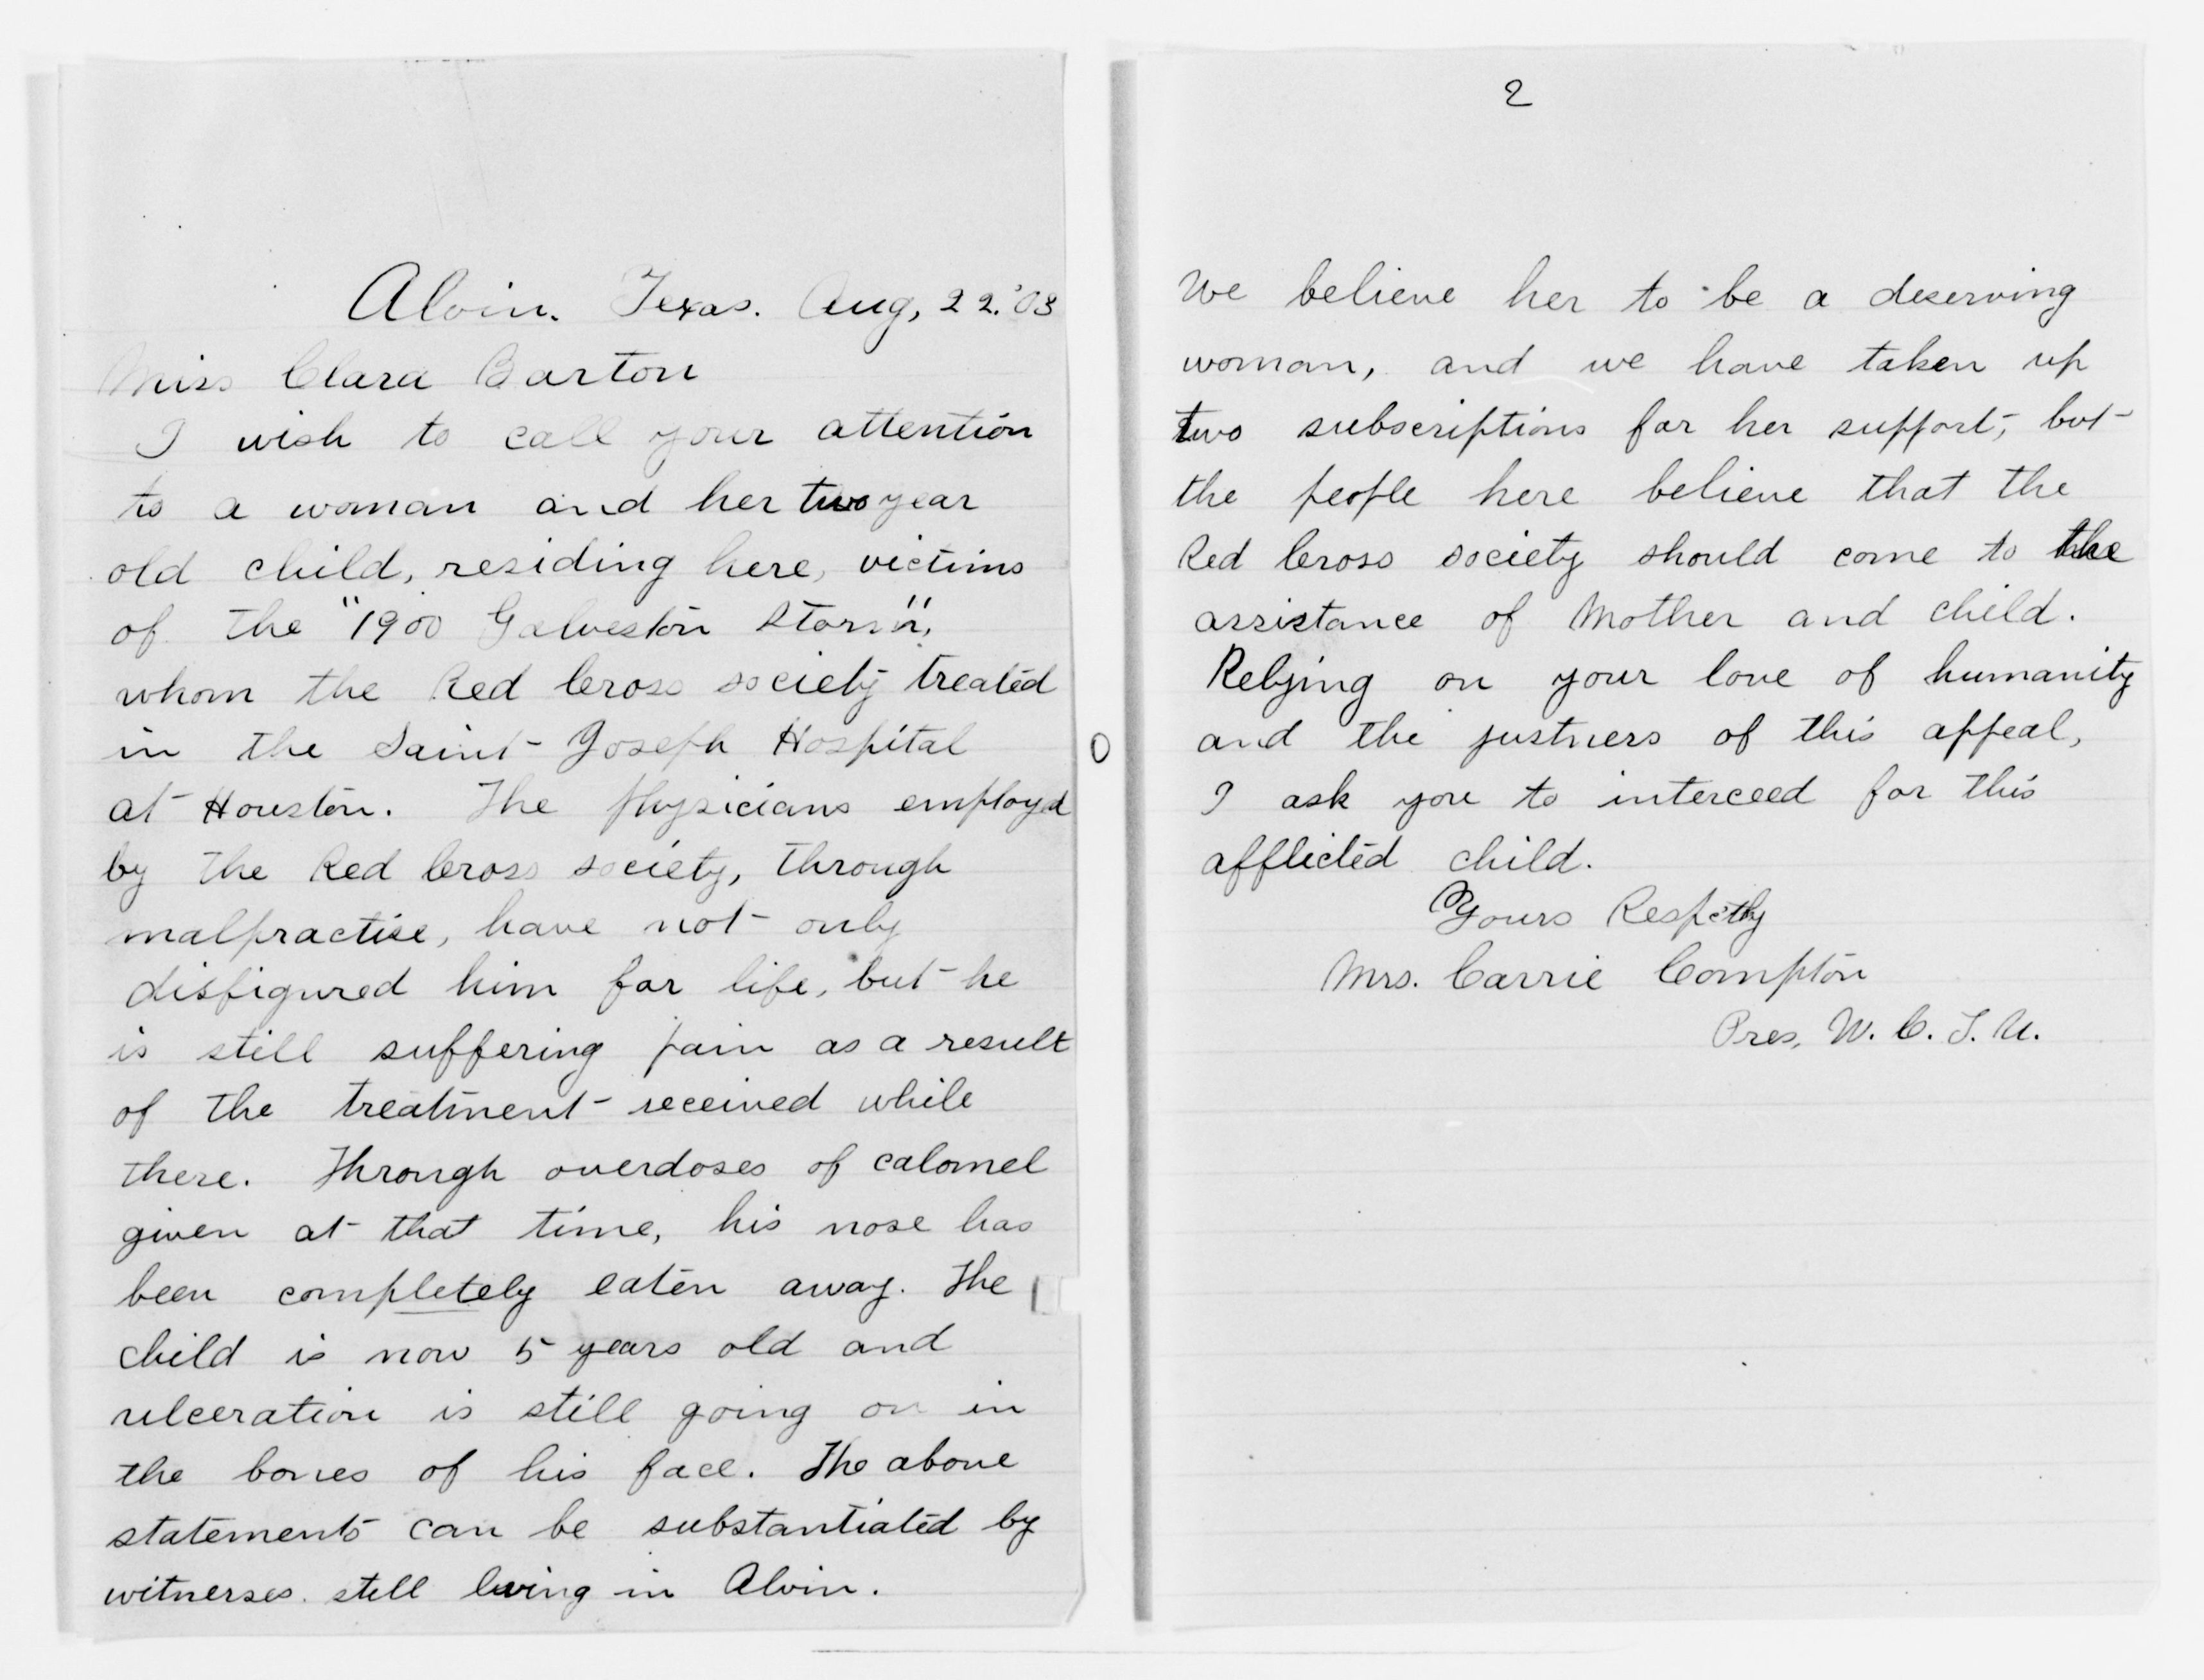 Alvin. Texas. Aug, 22.'03
Miss Clara Barton
I wish to call your attention
to a woman and her two year
old child, residing here, victims
of the "1900 Galveston Storm",
whom the Red Cross society treated
in the Saint Joseph Hospital
at Houston. The physicians employd
by the Red Cross society, through
malpractise, have not only
disfigured him for life, but he
is still suffering pain as a result
of the treatment received while
there. Through overdoses of calomel
given at that time, his nose has
been completely eaten away. The
child is now 5 years old and
ulceration is still going on in
the bones of his face. The above
statements can be substantiated by
witnesses still living in Alvin.
2
We believe her to be a deserving
woman, and we have taken up
two subscriptions for her support, but
the people here believe that the
Red Cross society should come to the
assistance of Mother and child.
Relying on your love of humanity
and the justness of this appeal,
I ask you to interceed for this
afflicted child.
Yours Respctly
Mrs. Carrie Compton
Pres, W. C. T. U.